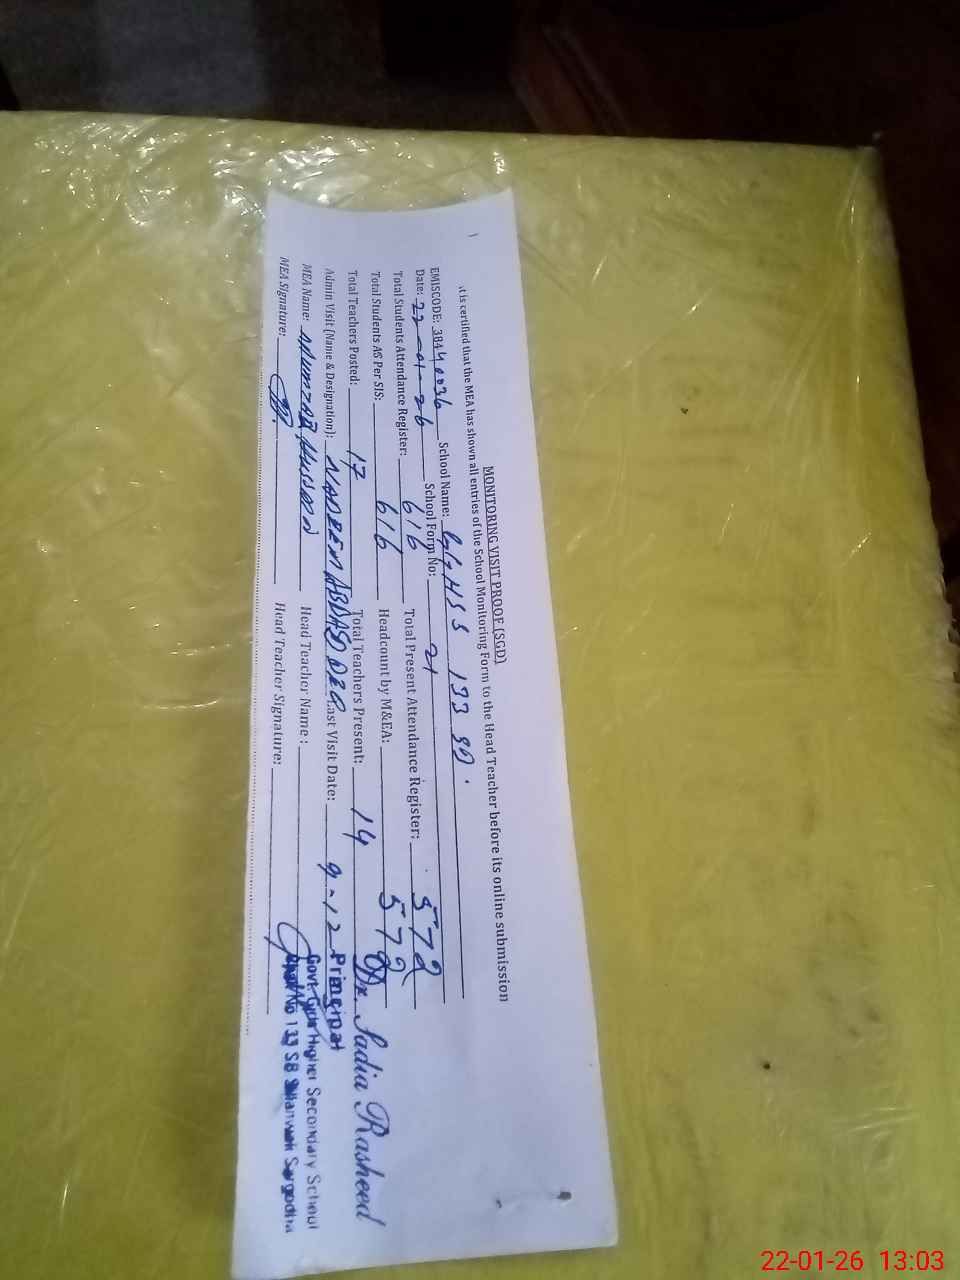 MONITORING VISIT PROOF (SGD)
It is certified that the MEA has shown all entries of the School Monitoring Form to the Head Teacher before its online submission
EMISCODE: 38440036 School Name: GGHSS 133 SB.
Date: 22-01-26 School Form No: 21
Total Students Attendance Register: 616 Total Present Attendance Register: 572
Total Students AS Per SIS: 616 Headcount by M&EA: 572
Total Teachers Posted: 17 Total Teachers Present: 14
Admin Visit (Name & Designation): NADEEM ABBAS Last Visit Date: 9-12-
MEA Name: MUMTAZ HUSSAIN Head Teacher Name :
MEA Signature: Head Teacher Signature:
Dr. Sadia Rasheed
Principal
Govt. Girls Higher Secondary School
Chak No 133 SB Sillanwali Sargodha
22-01-26 13:03